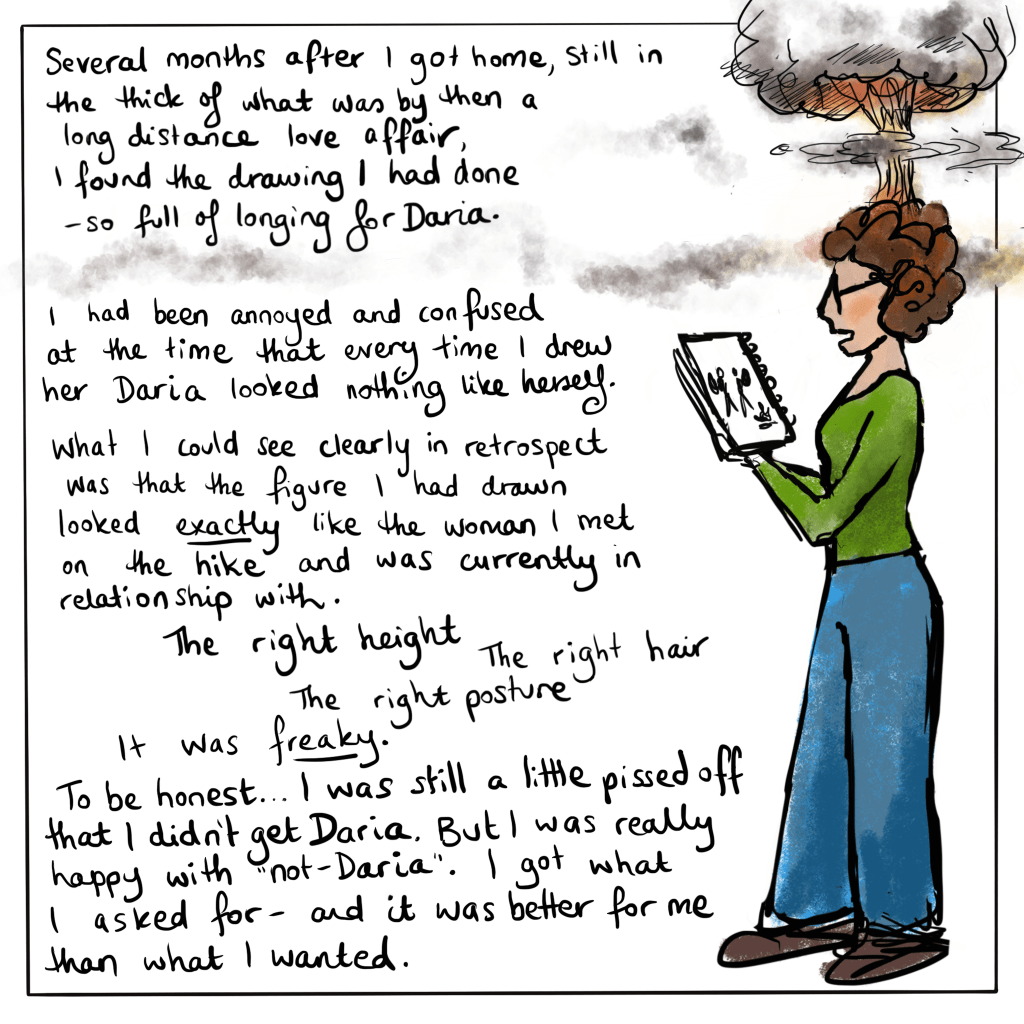 Several months after I got home, still in
the thick of what was by then a
long distance love affair,
I found the drawing I had done
- so full of longing for Daria.
I had been annoyed and confused
at the time that every time I drew
her Daria looked nothing like herself.
What I could see clearly in retrospect
was that the figure I had drawn
looked exactly like the woman I met
on the hike and was currently in
relationship with.
The right height
The right hair
The right posture
It was freaky.
To be honest... I was still a little pissed off
that I didn't get Daria. But I was really
happy with "not-Daria". I got what
I asked for - and it was better for me
than what I wanted.